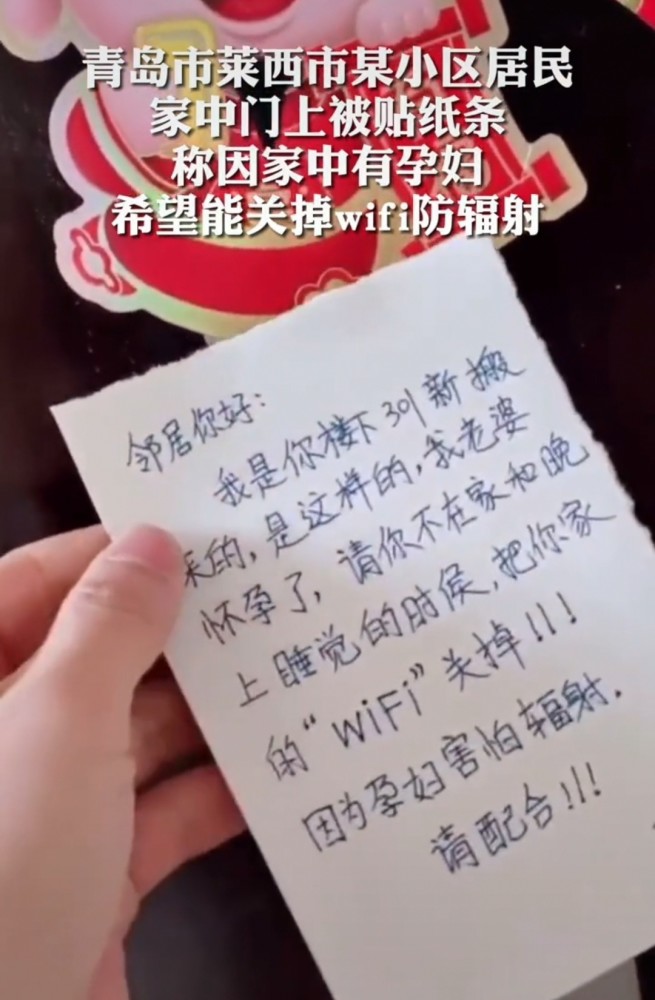 青岛市莱西市某小区居民
家中门上被贴纸条
称因家中有孕妇
希望能关掉wifi防辐射
邻居你好：
我是你楼下301新搬
来的，是这样的，我老婆
怀孕了，请你不在家和晚
上睡觉的时侯，把你家
的“WiFi”关掉!!!
因为孕妇害怕辐射.
请配合!!!